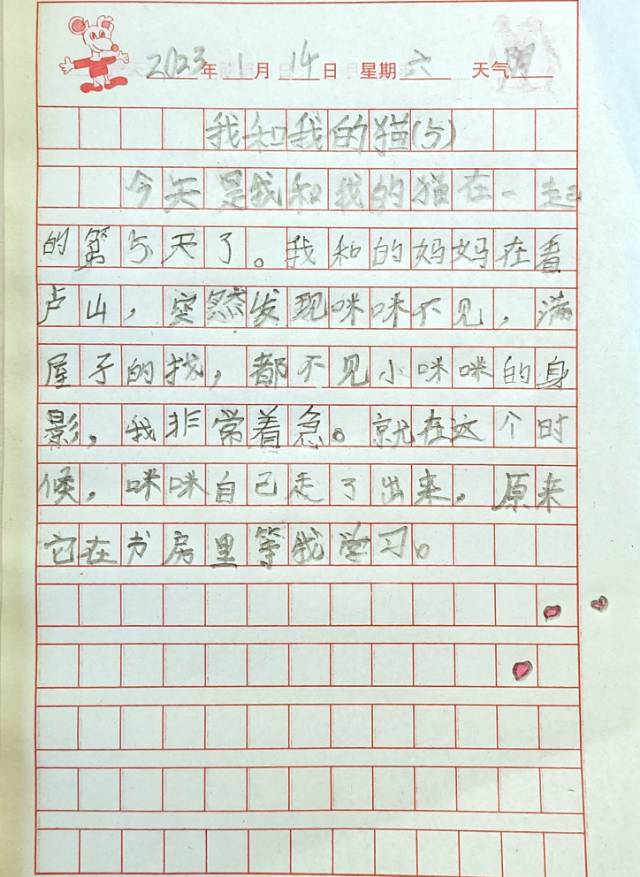 2023年1月14日 星期六 天气阴
我和我的猫(5)
今天是我和我的猫在一起
的第5天了。我和的妈妈在看
卢山，突然发现咪咪不见，满
屋子的找，都不见小咪咪的身
影，我非常着急。就在这个时
候，咪咪自己走了出来，原来
它在书房里等我学习。